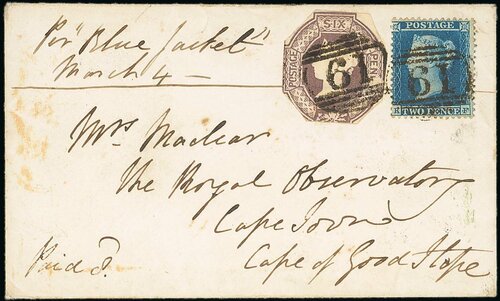 Per "Blue Jacket"
March 4
SIX
POSTAGE
PENCE
61
POSTAGE
61
E F
TWO PENCE
Mrs Maclear
The Royal Observatory
Cape Town
Cape of Good Hope
Paid 8.